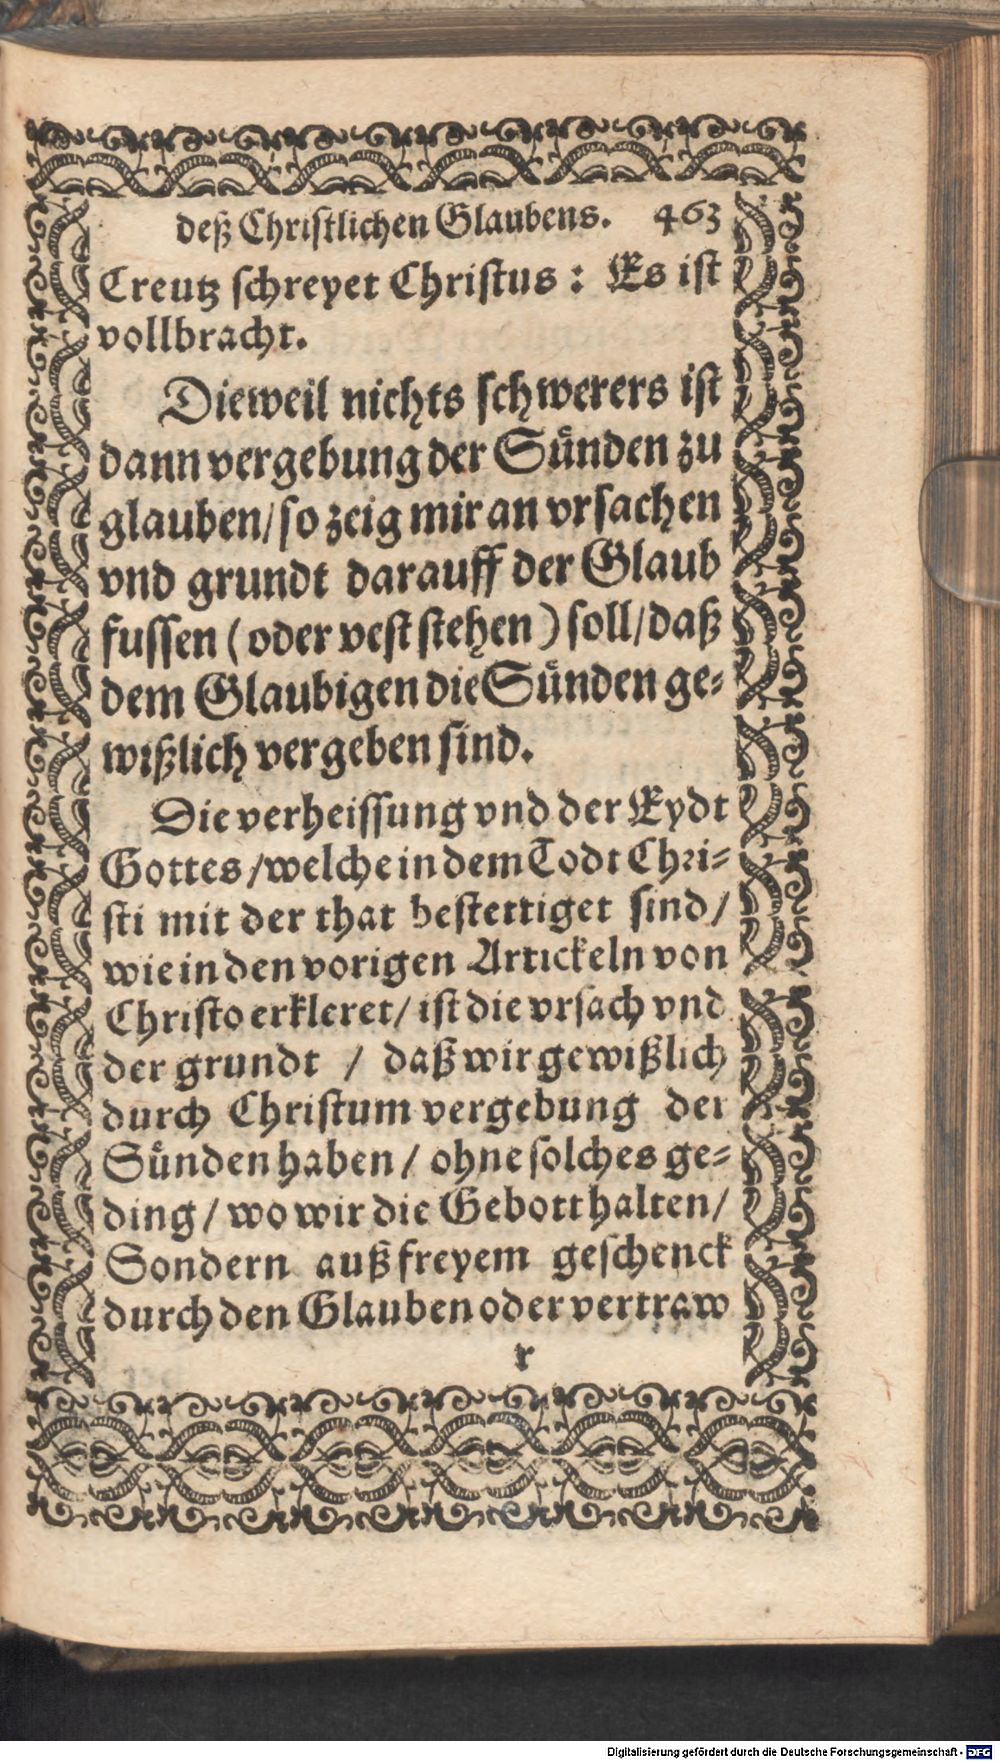 deß Christlichen Glaubens. 463
Creutz schreyet Christus: Es ist
vollbracht.
Dieweil nichts schwerers ist
dann vergebung der Sünden zu
glauben/ so zeig mir an vrsachen
vnd grundt darauff der Glaub
fussen (oder vest stehen) soll/ daß
dem Glaubigen die Sünden ge-
wißlich vergeben sind.
Die verheissung vnd der Eydt
Gottes/ welche in dem Todt Chri-
sti mit der that bestettiget sind/
wie in den vorigen Artickeln von
Christo erkleret/ ist die vrsach vnd
der grundt / daß wir gewißlich
durch Christum vergebung der
Sünden haben/ ohne solches ge-
ding/ wo wir die Gebott halten/
Sondern auß freyem geschenck
durch den Glauben oder vertraw
r
Digitalisierung gefördert durch die Deutsche Forschungsgemeinschaft - DFG